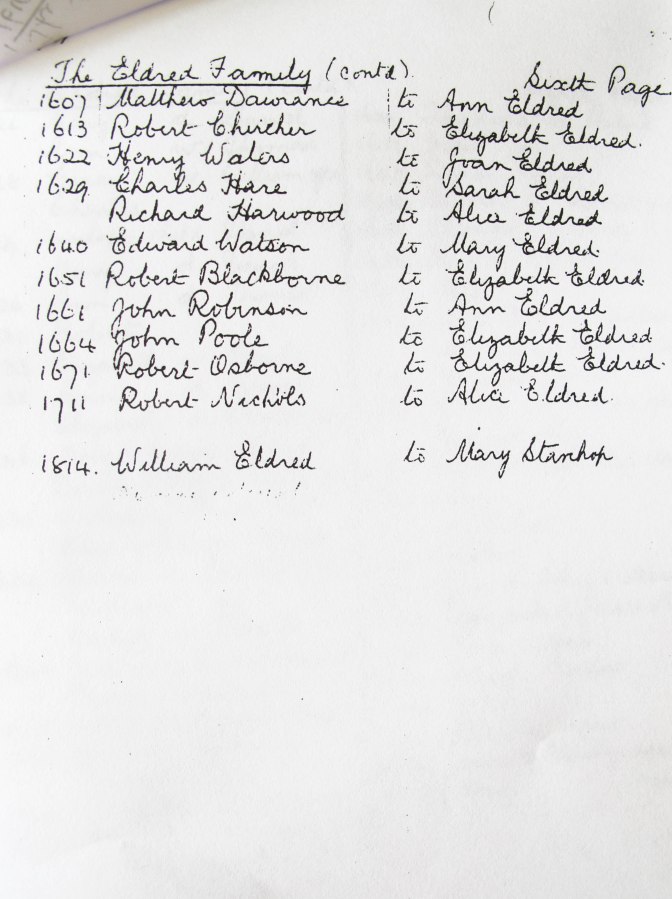 The Eldred Family (contd). Sixth Page
1607 Matthew Dawrance to Ann Eldred
1613 Robert Churcher to Elizabeth Eldred.
1622 Henry Waters to Joan Eldred
1629 Charles Hare to Sarah Eldred
Richard Harwood to Alice Eldred
1640 Edward Watson to Mary Eldred.
1651 Robert Blackborne to Elizabeth Eldred.
1661 John Robinson to Ann Eldred
1664 John Poole to Elizabeth Eldred
1671 Robert Osborne to Elizabeth Eldred.
1711 Robert Nichols to Alice Eldred.
1814. William Eldred to Mary Stanhop